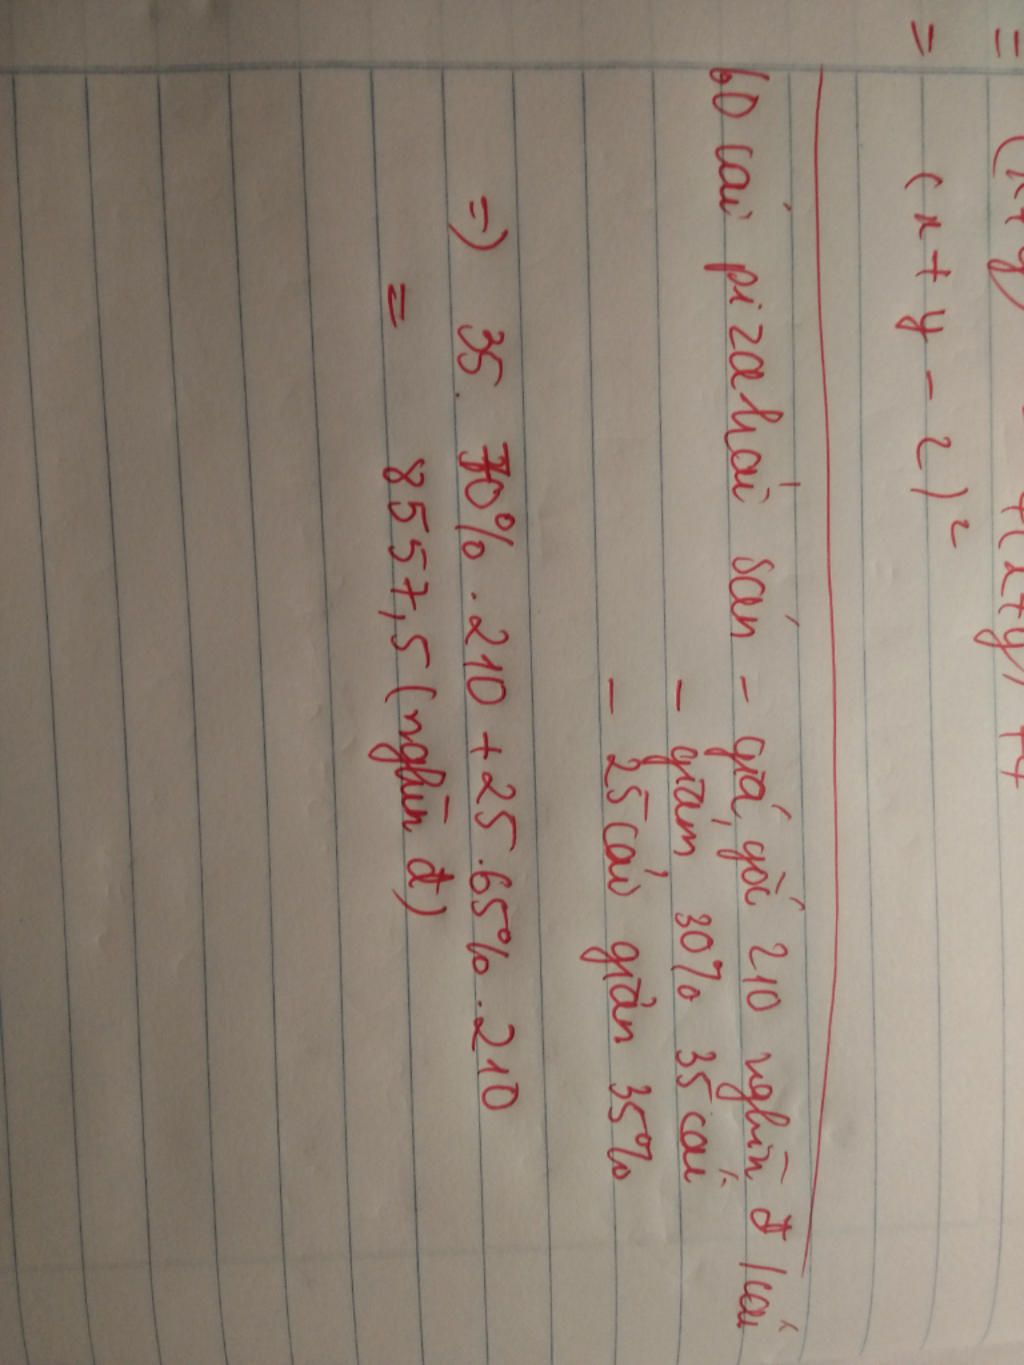 = (x+y)
= (x+y-2)²
60 cái pizzahải sản - giá gốc 210 nghìn đ/cái
- giảm 30% 35 cái
- 25 cái giản 35%
=) 35. 70%.210+25.65%.210
= 8557,5 (nghìn đ)